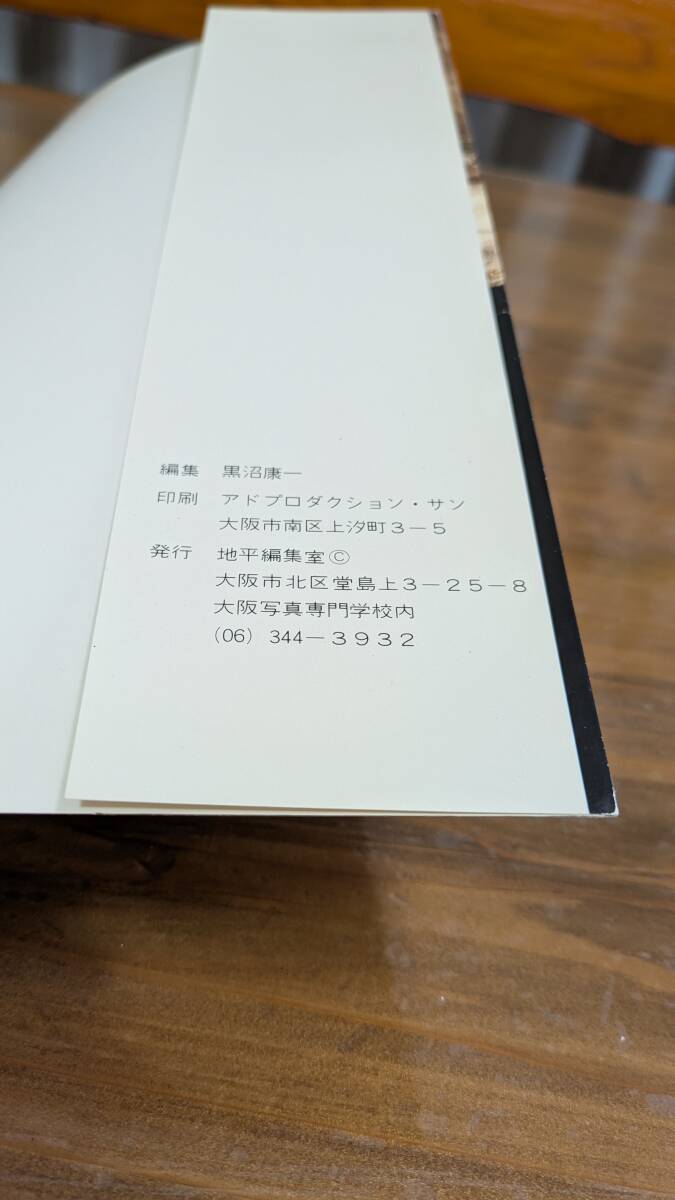 編集　黒沼康一
印刷　アドプロダクション・サン
大阪市南区上汐町3－5
発行　地平編集室©
大阪市北区堂島上3－25－8
大阪写真専門学校内
(06) 344－3932